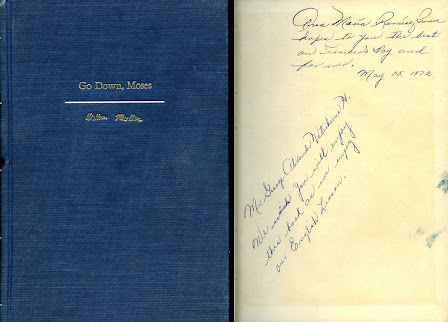 Go Down, Moses
William Faulkner
Ana María Ramírez
hopes to you the best
on Teacher's Day and
forever.
May 15, 1972
Mr.
We wish you will enjoy
this book as we enjoy
our English Lesson.